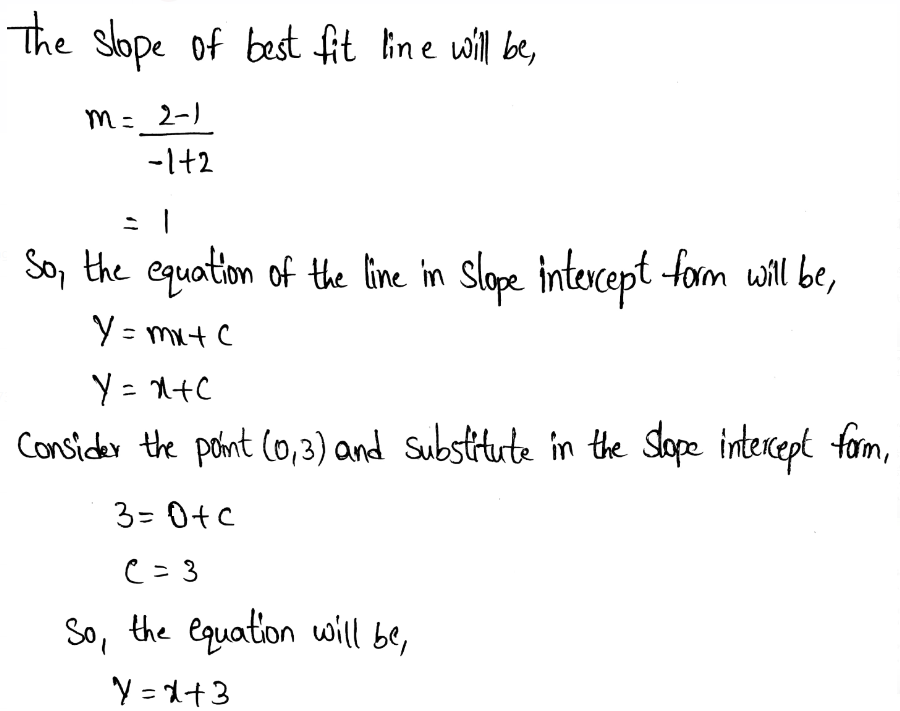 The slope of best fit line will be,
m = 2-1
-1+2
= 1
So, the equation of the line in slope intercept form will be,
y = mx + c
y = x+c
Consider the point (0,3) and substitute in the slope intercept form,
3 = 0+c
c = 3
So, the equation will be,
y = x+3